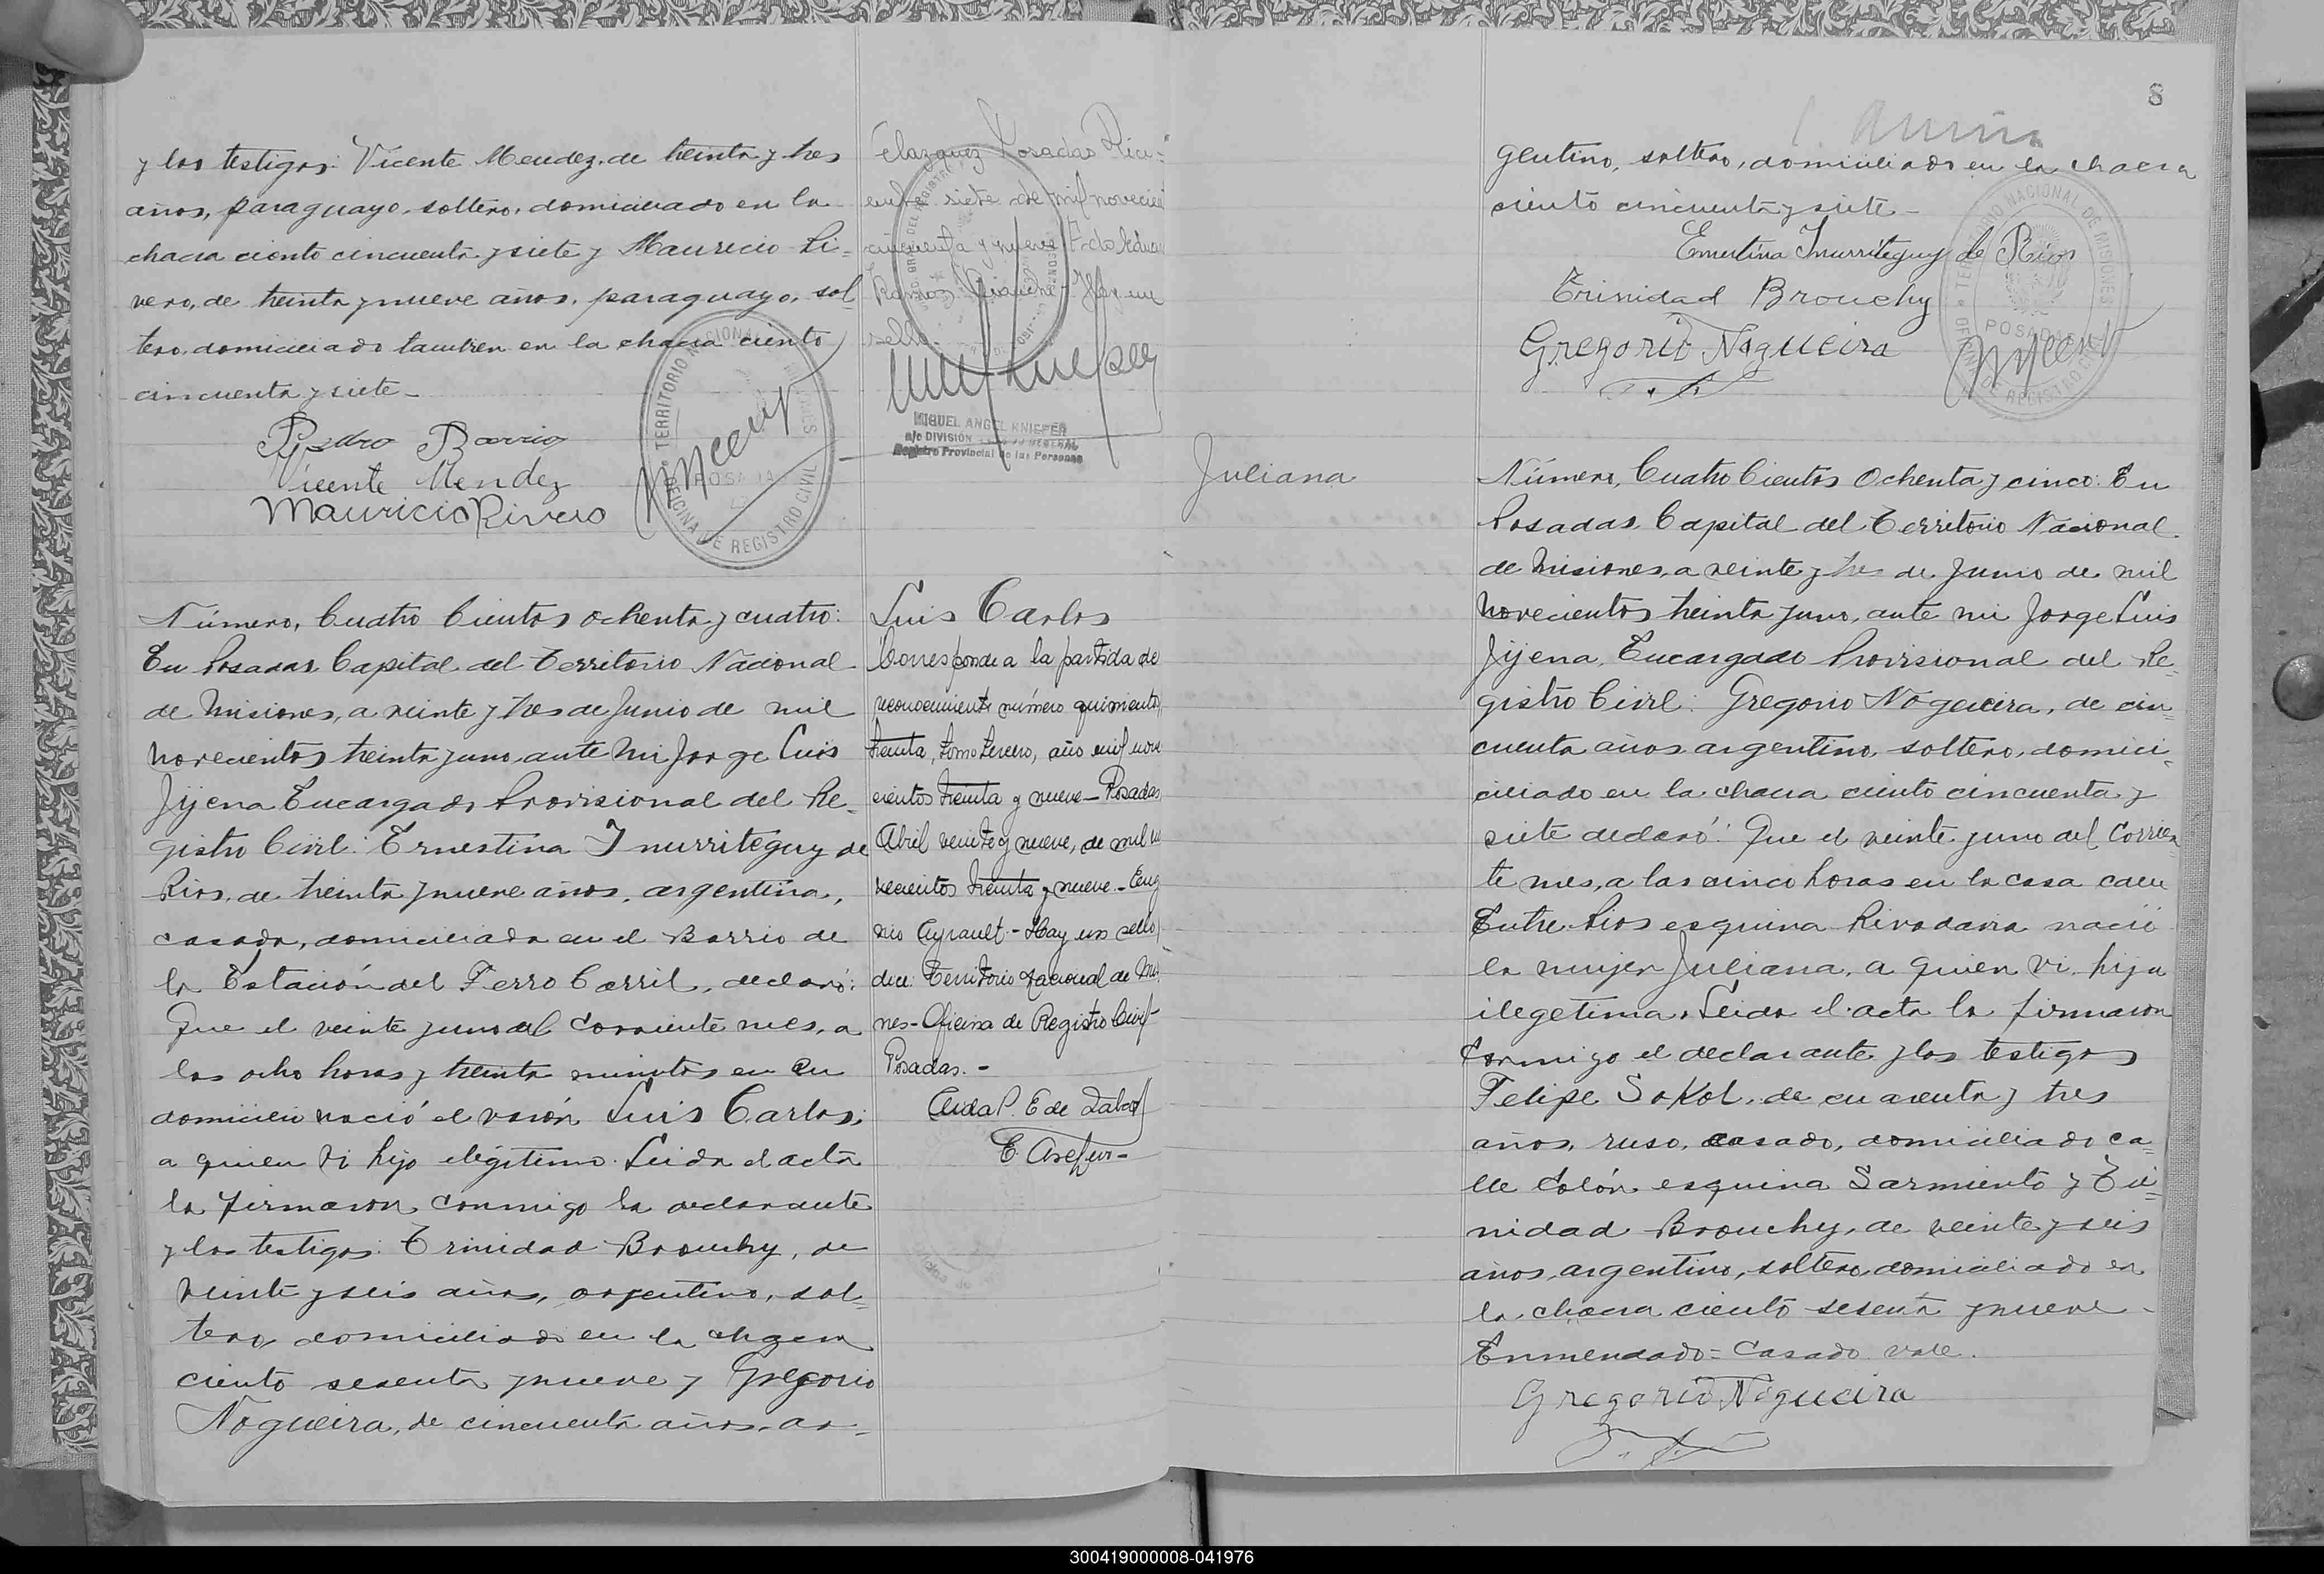 y los testigos: Vicente Mendez, de treinta y tres
años, paraguayo, soltero, domiciliado en la
chacra ciento cincuenta y siete y Mauricio Ri-
vero, de treinta y nueve años, paraguayo, sol-
tero, domiciliado tambien en la chacra ciento
cincuenta y siete-
Pedro Barrios
Vicente Mendez
Mauricio Rivero
TERRITORIO NACIONAL DE MISIONES
POSADAS
OFICINA DE REGISTRO CIVIL
Número, Cuatro Cientos Ochenta y cuatro:
En Posadas Capital del Territorio Nacional
de Misiones, a veinte y tres de Junio de mil
novecientos treinta y uno, ante mi Jorge Luis
Jijena Encargado Provisional del Re-
gistro Civil: Ernestina Inurriteguy de
Rios, de treinta y nueve años, argentina,
casada, domiciliada en el Barrio de
la Estación del Ferro Carril, declaró:
Que el veinte y uno del corriente mes, a
las ocho horas y treinta minutos en su
domicilio nació el varón Luis Carlos,
a quien vi hijo ilegitimo. Leida el acta
la firmaron conmigo la declarante
y los testigos: Trinidad Brouchy, de
veinte y seis años, argentino, sol-
tero, domiciliado en la chacra
ciento sesenta y nueve y Gregorio
Nogueira, de cincuenta años, ar-
elazquez Posadas Dici-
embre siete de mil noveci
cincuenta y nueve
Ramos Hay un
sello.
MIGUEL ANGEL KNIEPER
a/c DIVISIÓN
Registro Provincial de las Personas
Luis Carlos
Corresponde a la partida de
reconocimiento número quinientos
treinta, tomo tercero, año mil nove
cientos treinta y nueve- Posadas
Abril veinte y nueve, de mil no
vecientos treinta y nueve.- Euge
nio Ayrault.- Hay un sello,
dice: Territorio Nacional de Misi
nes- Oficina de Registro Civil-
Posadas.-
8
gentino, soltero, domiciliado en la chacra
ciento cincuenta y siete-
Ernestina Inurriteguy de Rios
Trinidad Brouchy
Gregorio Nogueira
TERRITORIO NACIONAL DE MISIONES
POSADAS
OFICINA DE REGISTRO CIVIL
Juliana
Número, Cuatro Cientos Ochenta y cinco: En
Posadas Capital del Territorio Nacional
de Misiones, a veinte y tres de Junio de mil
novecientos treinta y uno, ante mi Jorge Luis
Jijena, Encargado Provisional del Re-
gistro Civil: Gregorio Nogueira, de cin-
cuenta años, argentino, soltero, domici-
ciliado en la chacra ciento cincuenta y
siete declaró: Que el veinte y uno del corrien-
te mes, a las cinco horas en la casa calle
Entre Rios esquina Rivadavia nació
la mujer Juliana, a quien vi, hija
ilegetima. Leida el acta la firmaron
conmigo el declarante y los testigos
Felipe Sokol, de cuarenta y tres
años, ruso, casado, domiciliado ca-
lle Colón esquina Sarmiento y Tri-
nidad Brouchy, de veinte y seis
años, argentino, soltero, domiciliado en
la chacra ciento sesenta y nueve-
Enmendado= Casado vale.
Gregorio Nogueira
300419000008-041976